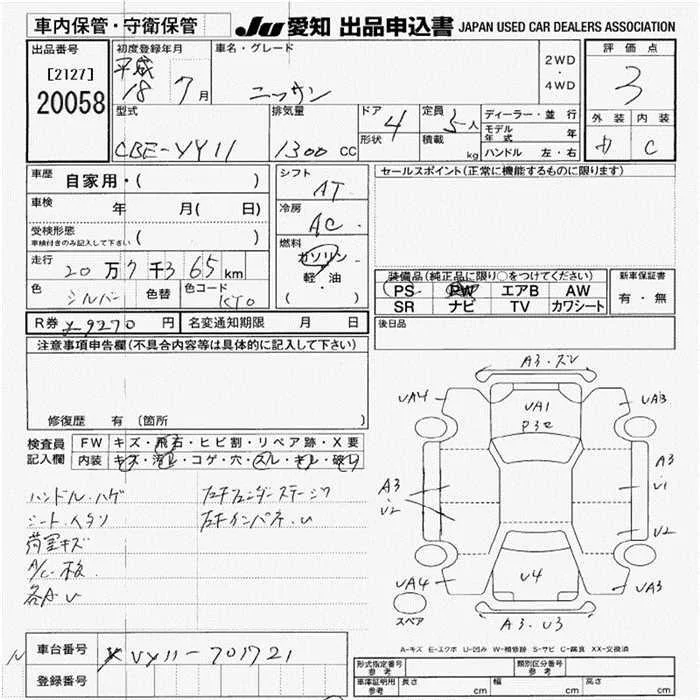 車内保管・守衛保管
JU 愛知 出品申込書 JAPAN USED CAR DEALERS ASSOCIATION
出品番号
[2127]
20058
初度登録年月
平成
18 7月
車名・グレード
ニッサン
2WD
・
4WD
評価点
3
外装 内装
C
型式
CBE-VY11
排気量
1300 CC
ドア
4
形状
定員
5人
積載
kg
ディーラー・並行
モデル年式 年
ハンドル 左・右
車歴
自家用・( )
車検
年 月( 日)
受検形態
車検付きのみ記入して下さい ( )
走行
20万7千365km
色
シルバー
色替
色コード
KY0
シフト
AT
冷房
AC
燃料
ガソリン
軽・油
( )
セールスポイント(正常に機能するものに限ります)
装備品(純正品に限り○をつけてください)
PS PW エアB AW
SR ナビ TV カワシート
新車保証書
有・無
R券 ¥9270 円
名変通知期限 月 日
後日品
注意事項申告欄(不具合内容等は具体的に記入して下さい)
修復歴 有 (箇所 )
検査員
記入欄
FW キズ・飛石・ヒビ割・リペア跡・X要
内装 キズ・汚レ・コゲ・穴・スレ・キレ・破レ
ハンドル・ハゲ
シート・ヘタリ
荷室キズ
各A U
右キフェンダーステージツ
右キインパネ・U
A3・ズレ
UA4
UA1
P3e
UA3
A3
U2
A3
U1
U2
UA4
U4
UA3
A3・U3
スペア
A-キズ E-エクボ U-凹み W-補修跡 S-サビ C-腐食 XX-交換済
車台番号
VY11-701721
登録番号
形式指定番号
参考
類別区分番号
参考
車庫証明用
参考
長さ cm
幅 cm
高さ cm